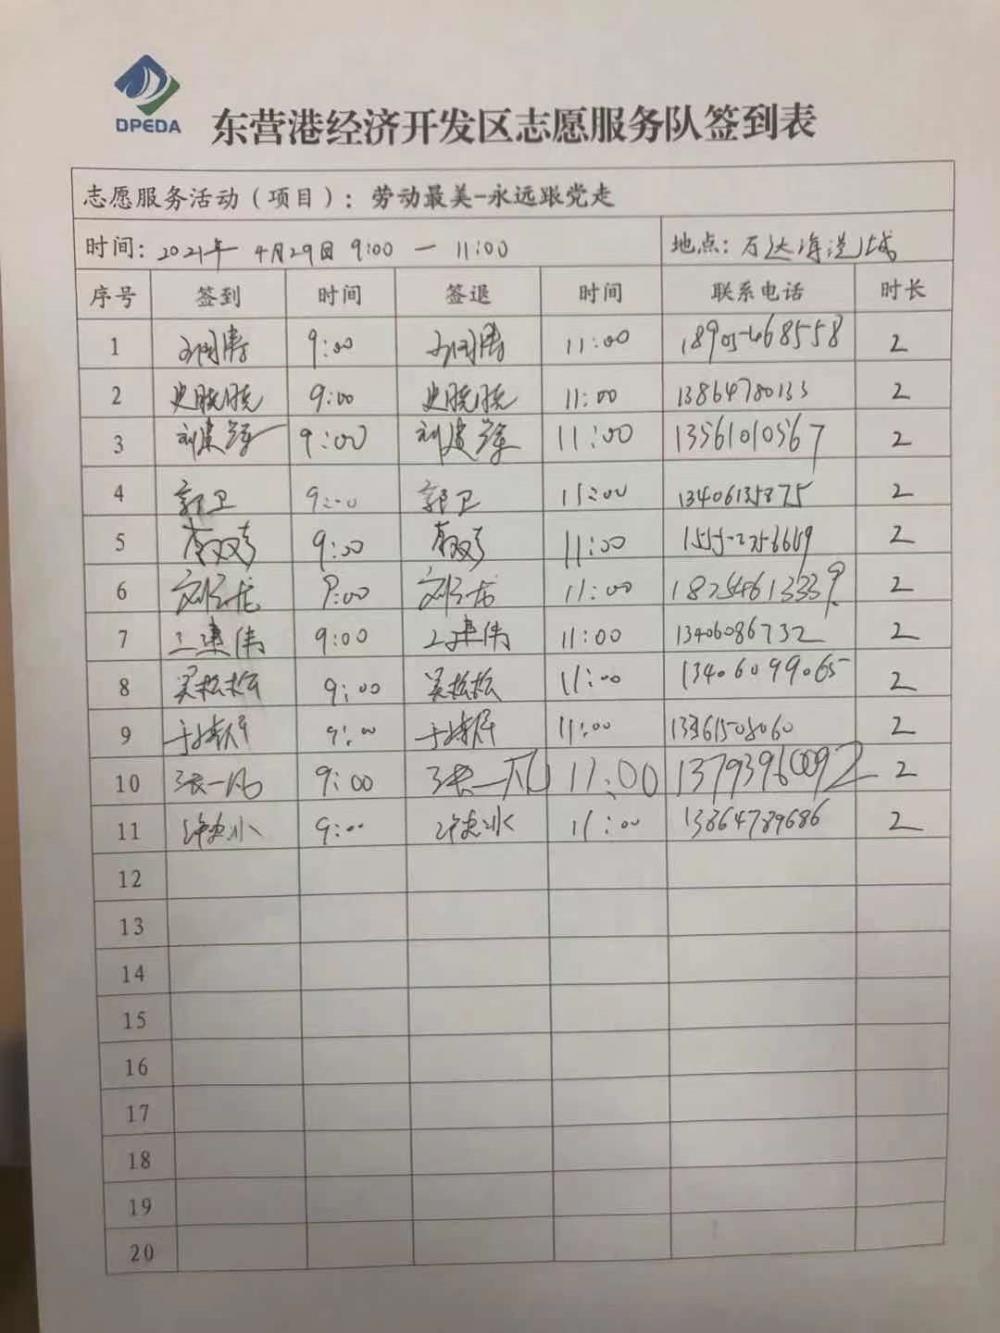 DPEDA
东营港经济开发区志愿服务队签到表
志愿服务活动（项目）：劳动最美-永远跟党走
时间：2021年 4月29日 9:00 — 11:00 地点：万达海港城
序号 签到 时间 签退 时间 联系电话 时长
1 9:00 11:00 2
2 史晓晓 9:00 史晓晓 11:00 13864780133 2
3 9:00 11:00 13561010567 2
4 郭卫 9:00 郭卫 11:00 13406135875 2
5 9:00 11:00 2
6 9:00 11:00 18254613339 2
7 王建伟 9:00 王建伟 11:00 13406086732 2
8 吴松松 9:00 吴松松 11:00 13406099065 2
9 9:00 11:00 13361508060 2
10 张一凡 9:00 张一凡 11:00 13793960092 2
11 9:00 11:00 13864789686 2
12
13
14
15
16
17
18
19
20